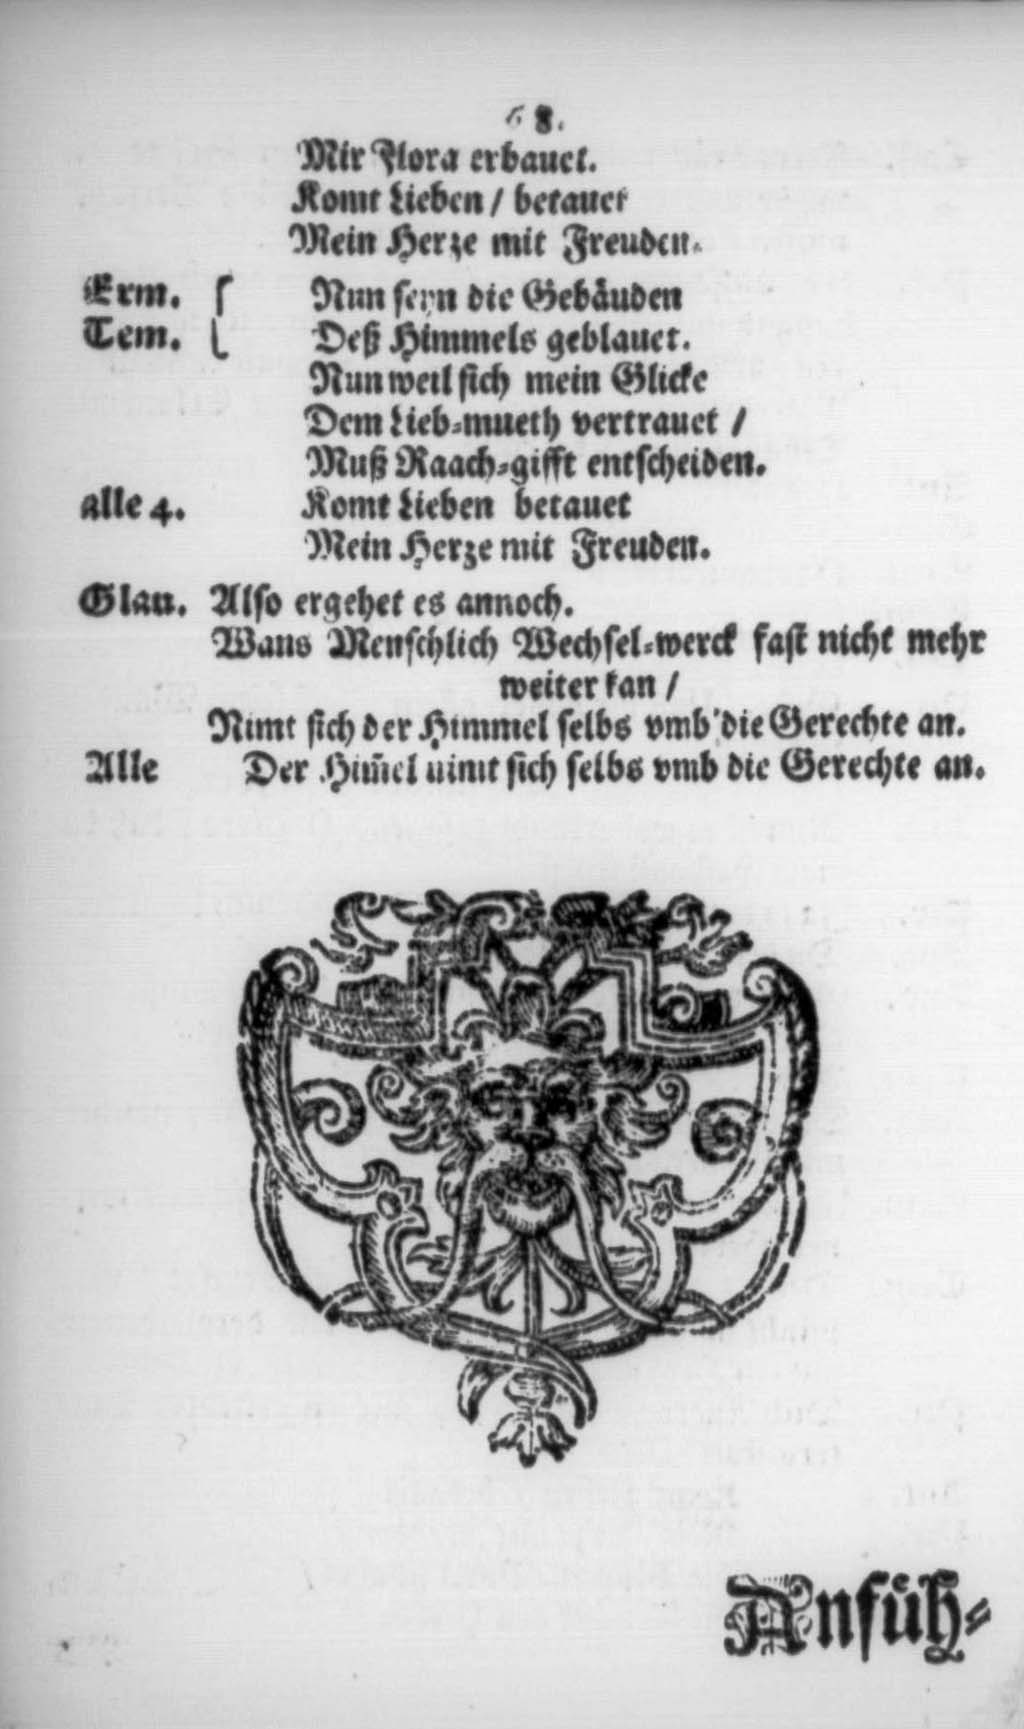 68.
Mir Flora erbauet.
Komt Lieben / betauet
Mein Herze mit Freuden.
Erm. Nun seyn die Gebäuden
Tem. Deß Himmels geblauet.
Nun weil sich mein Glicke
Dem Lieb-mueth vertrauet /
Muß Raach-gifft entscheiden.
alle 4. Komt Lieben betauet
Mein Herze mit Freuden.
Glau. Also ergehet es annoch.
Wans Menschlich Wechsel-werck fast nicht mehr
weiter kan /
Nimt sich der Himmel selbs vmb die Gerechte an.
Alle Der Him̃el nimt sich selbs vmb die Gerechte an.
Anfüh-